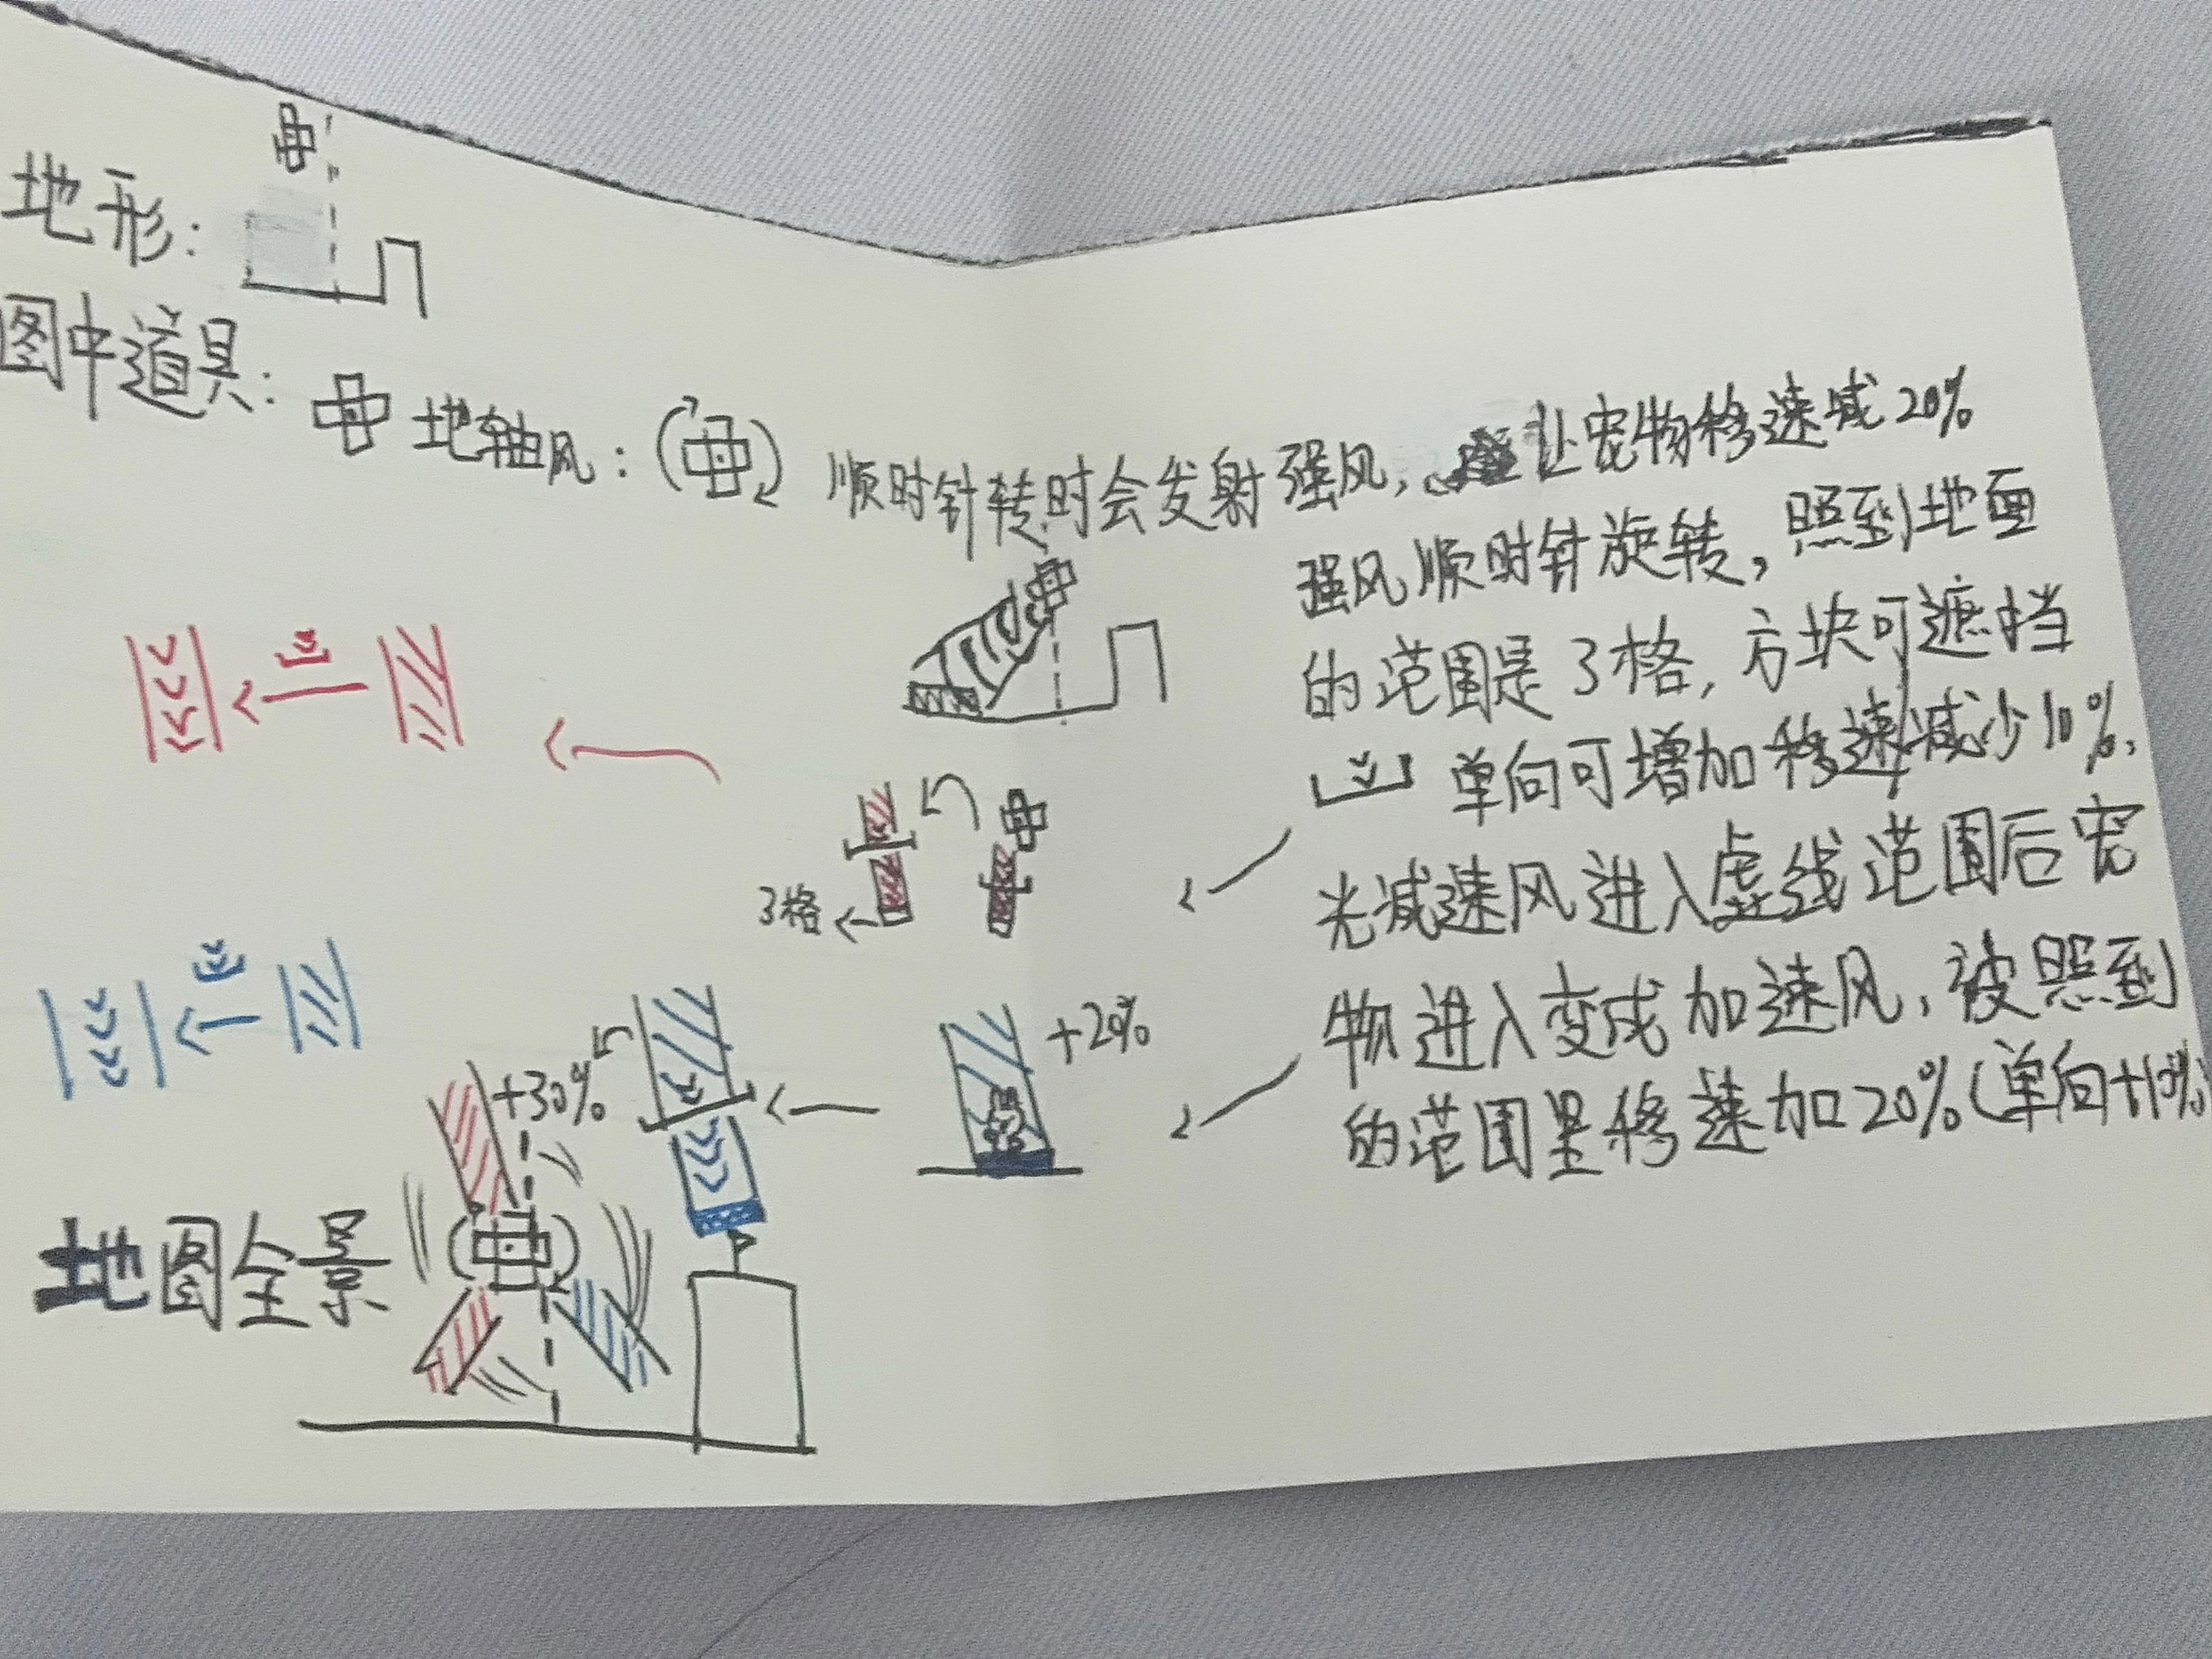 地形：
图中道具：
地轴风：
顺时针转时会发射强风，让宠物移速减20%
强风顺时针旋转，照到地面
的范围是3格，方块可遮挡
单向可增加移速/减少10%.
光减速风进入虚线范围后宠
物进入变成加速风，被照到
的范围里移速加20%(单向+10%)
3格
+20%
+30%
地图全景